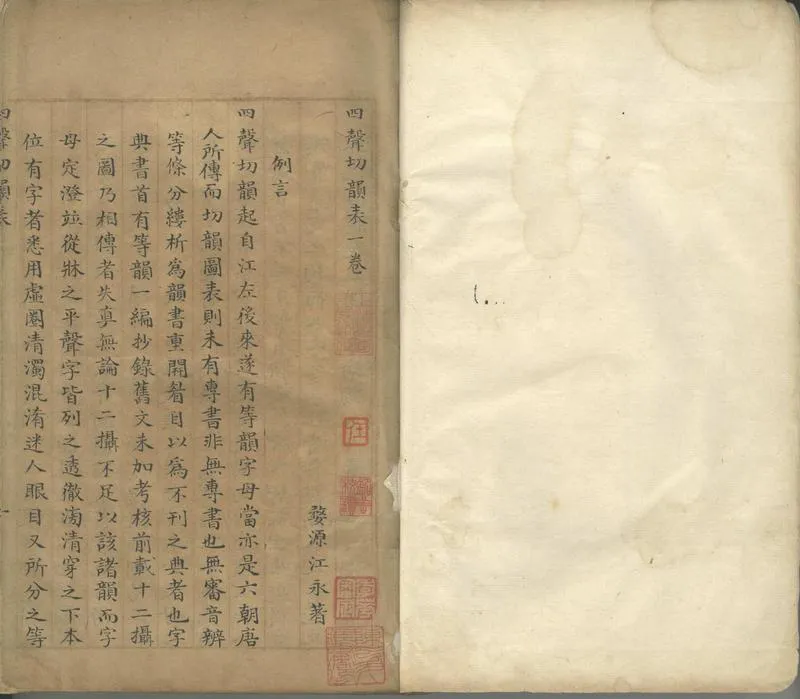 四聲切韻表一卷
婺源江永著
例言
四聲切韻起自江左後來遂有等韻字母當亦是六朝唐
人所傳而切韻圖表則未有專書非無專書也無審音辨
等條分縷析爲韻書重開眷目以爲不刊之典者也字
典書首有等韻一編抄錄舊文未加考核前載十二攝
之圖乃相傳者失真無論十二攝不足以該諸韻而字
母定澄並從牀之平聲字皆列之透徹滂清穿之下本
位有字者悉用虛圈清濁混淆迷人眼目又所分之等
四聲切韻表